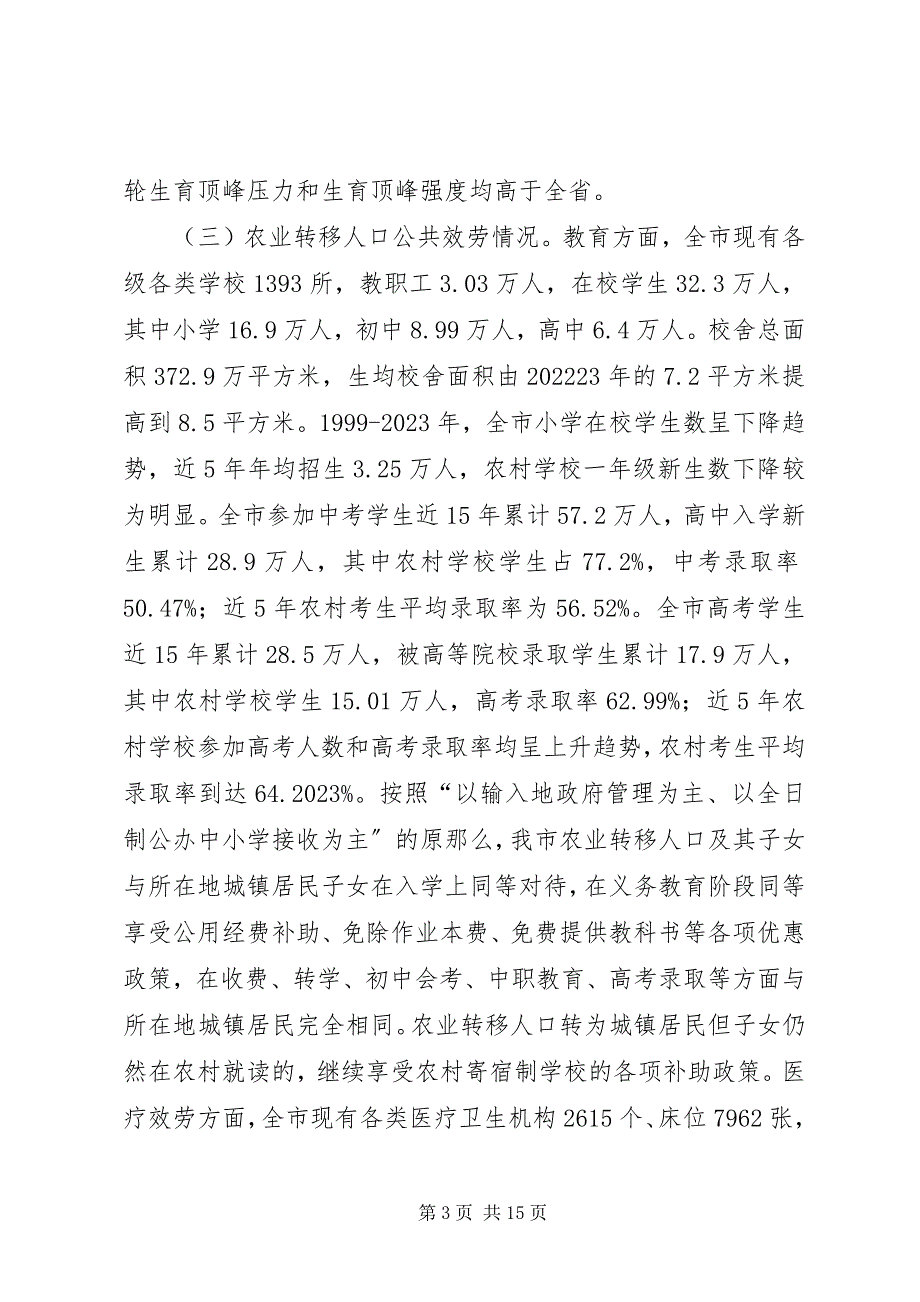 轮生育顶峰压力和生育顶峰强度均高于全省。
（三）农业转移人口公共效劳情况。教育方面，全市现有各
级各类学校 1393 所，教职工 3.03 万人，在校学生 32.3 万人，
其中小学 16.9 万人，初中 8.99 万人，高中 6.4 万人。校舍总面
积 372.9 万平方米，生均校舍面积由 202223 年的 7.2 平方米提
高到 8.5 平方米。1999-2023 年，全市小学在校学生数呈下降趋
势，近 5 年年均招生 3.25 万人，农村学校一年级新生数下降较
为明显。全市参加中考学生近 15 年累计 57.2 万人，高中入学新
生累计 28.9 万人，其中农村学校学生占 77.2%，中考录取率
50.47%；近 5 年农村考生平均录取率为 56.52%。全市高考学生
近 15 年累计 28.5 万人，被高等院校录取学生累计 17.9 万人，
其中农村学校学生 15.01 万人，高考录取率 62.99%；近 5 年农
村学校参加高考人数和高考录取率均呈上升趋势，农村考生平均
录取率到达 64.2023%。按照“以输入地政府管理为主、以全日
制公办中小学接收为主〞的原那么，我市农业转移人口及其子女
与所在地城镇居民子女在入学上同等对待，在义务教育阶段同等
享受公用经费补助、免除作业本费、免费提供教科书等各项优惠
政策，在收费、转学、初中会考、中职教育、高考录取等方面与
所在地城镇居民完全相同。农业转移人口转为城镇居民但子女仍
然在农村就读的，继续享受农村寄宿制学校的各项补助政策。医
疗效劳方面，全市现有各类医疗卫生机构 2615 个、床位 7962 张，
第 3 页 共 15 页